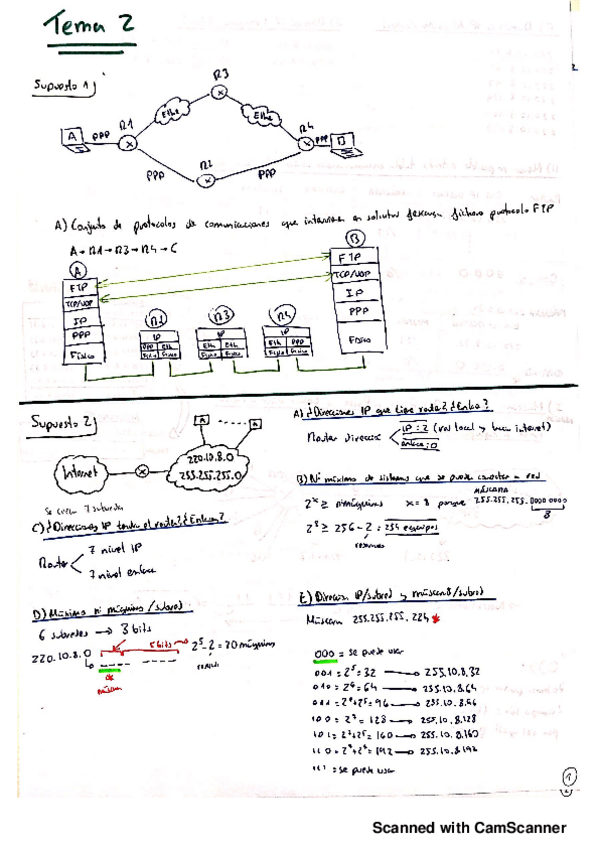 Tema 2
Supuesto 1)
R3
Ethe
Ethe
A
PPP
R1
R4
PPP
B
PPP
R2
PPP
A) Conjunto de protocolos de comunicaciones que intervienen en solicitar descarga fichero protocolo FTP
A→R1→R3→R4→C
A
B
FTP
FTP
TCP/UDP
TCP/UDP
IP
IP
PPP
PPP
Físico
Físico
R1
R3
R4
IP
IP
IP
PPP Eth
Eth Eth
Eth PPP
Físico Físico
Físico Físico
Físico Físico
Supuesto 2)
A
A
Internet
220.10.8.0
255.255.255.0
A) ¿Direcciones IP que tiene router? ¿Enlace?
Router direcciones
IP: 2 (red local y hacia internet)
enlace: 0
B) Nº máximo de sistemas que se puede conectar a red
2ˣ ≥ nº máquinas x = 8 porque
MÁSCARA
255.255.255.0000 0000
8
2⁸ ≥ 256 - 2 = 254 equipos
C) ¿Direcciones IP tendrá el router? ¿Enlace?
Router
7 nivel IP
7 nivel enlace
D) Máximo nº máquinas/subred
6 subredes → 3 bits
220.10.8.0
5 bits
2⁵ - 2 = 30 máquinas
máscara
E) Dirección IP/subred y máscara/subred
Máscara 255.255.255.224 *
000 = se puede usar
001 = 2⁵ = 32 → 255.10.8.32
010 = 2⁶ = 64 → 255.10.8.64
011 = 2⁶+2⁵ = 96 → 255.10.8.96
100 = 2⁷ = 128 → 255.10.8.128
101 = 2⁷+2⁵ = 160 → 255.10.8.160
110 = 2⁷+2⁶ = 192 → 255.10.8.192
111 = se puede usar
1
Scanned with CamScanner